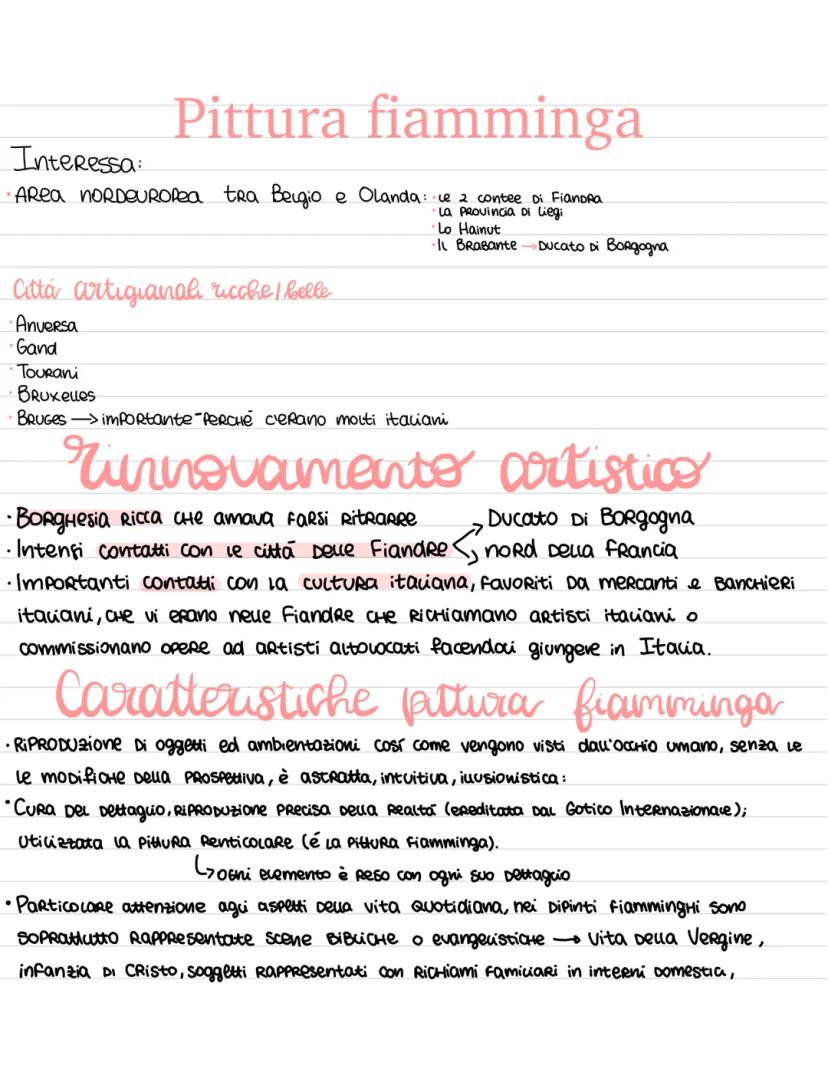 Pittura fiamminga
Interessa:
• Area nordeuropea tra Belgio e Olanda: • le 2 contee di Fiandra
• La Provincia di Liegi
• Lo Hainut
• Il Brabante → Ducato di Borgogna
Cittá artigianali ricche/belle
• Anversa
• Gand
• Tourani
• Bruxelles
• Bruges → importante - perché c'erano molti italiani
rinnovamento artistico
• Borghesia ricca che amava farsi ritrarre Ducato di Borgogna
• Intensi contatti con le cittá delle Fiandre < nord della francia
• Importanti contatti con la cultura italiana, favoriti da mercanti e banchieri
italiani, che vi erano nelle Fiandre che richiamano artisti italiani o
commissionano opere ad artisti altolocati facendoli giungere in Italia.
Caratteristiche pittura fiamminga
• Riproduzione di oggetti ed ambientazioni cosí come vengono visti dall'occhio umano, senza le
le modifiche della prospettiva, è astratta, intuitiva, illusionistica:
• Cura del dettaglio, riproduzione precisa della realtá (ereditata dal Gotico Internazionale);
Utilizzata la pittura lenticolare (é la pittura fiamminga).
↳ ogni elemento è reso con ogni suo dettaglio
• Particolare attenzione agli aspetti della vita quotidiana, nei dipinti fiamminghi sono
soprattutto rappresentate scene bibliche o evangelistiche → vita della Vergine,
infanzia di Cristo, soggetti rappresentati con richiami familiari in interni domestici,